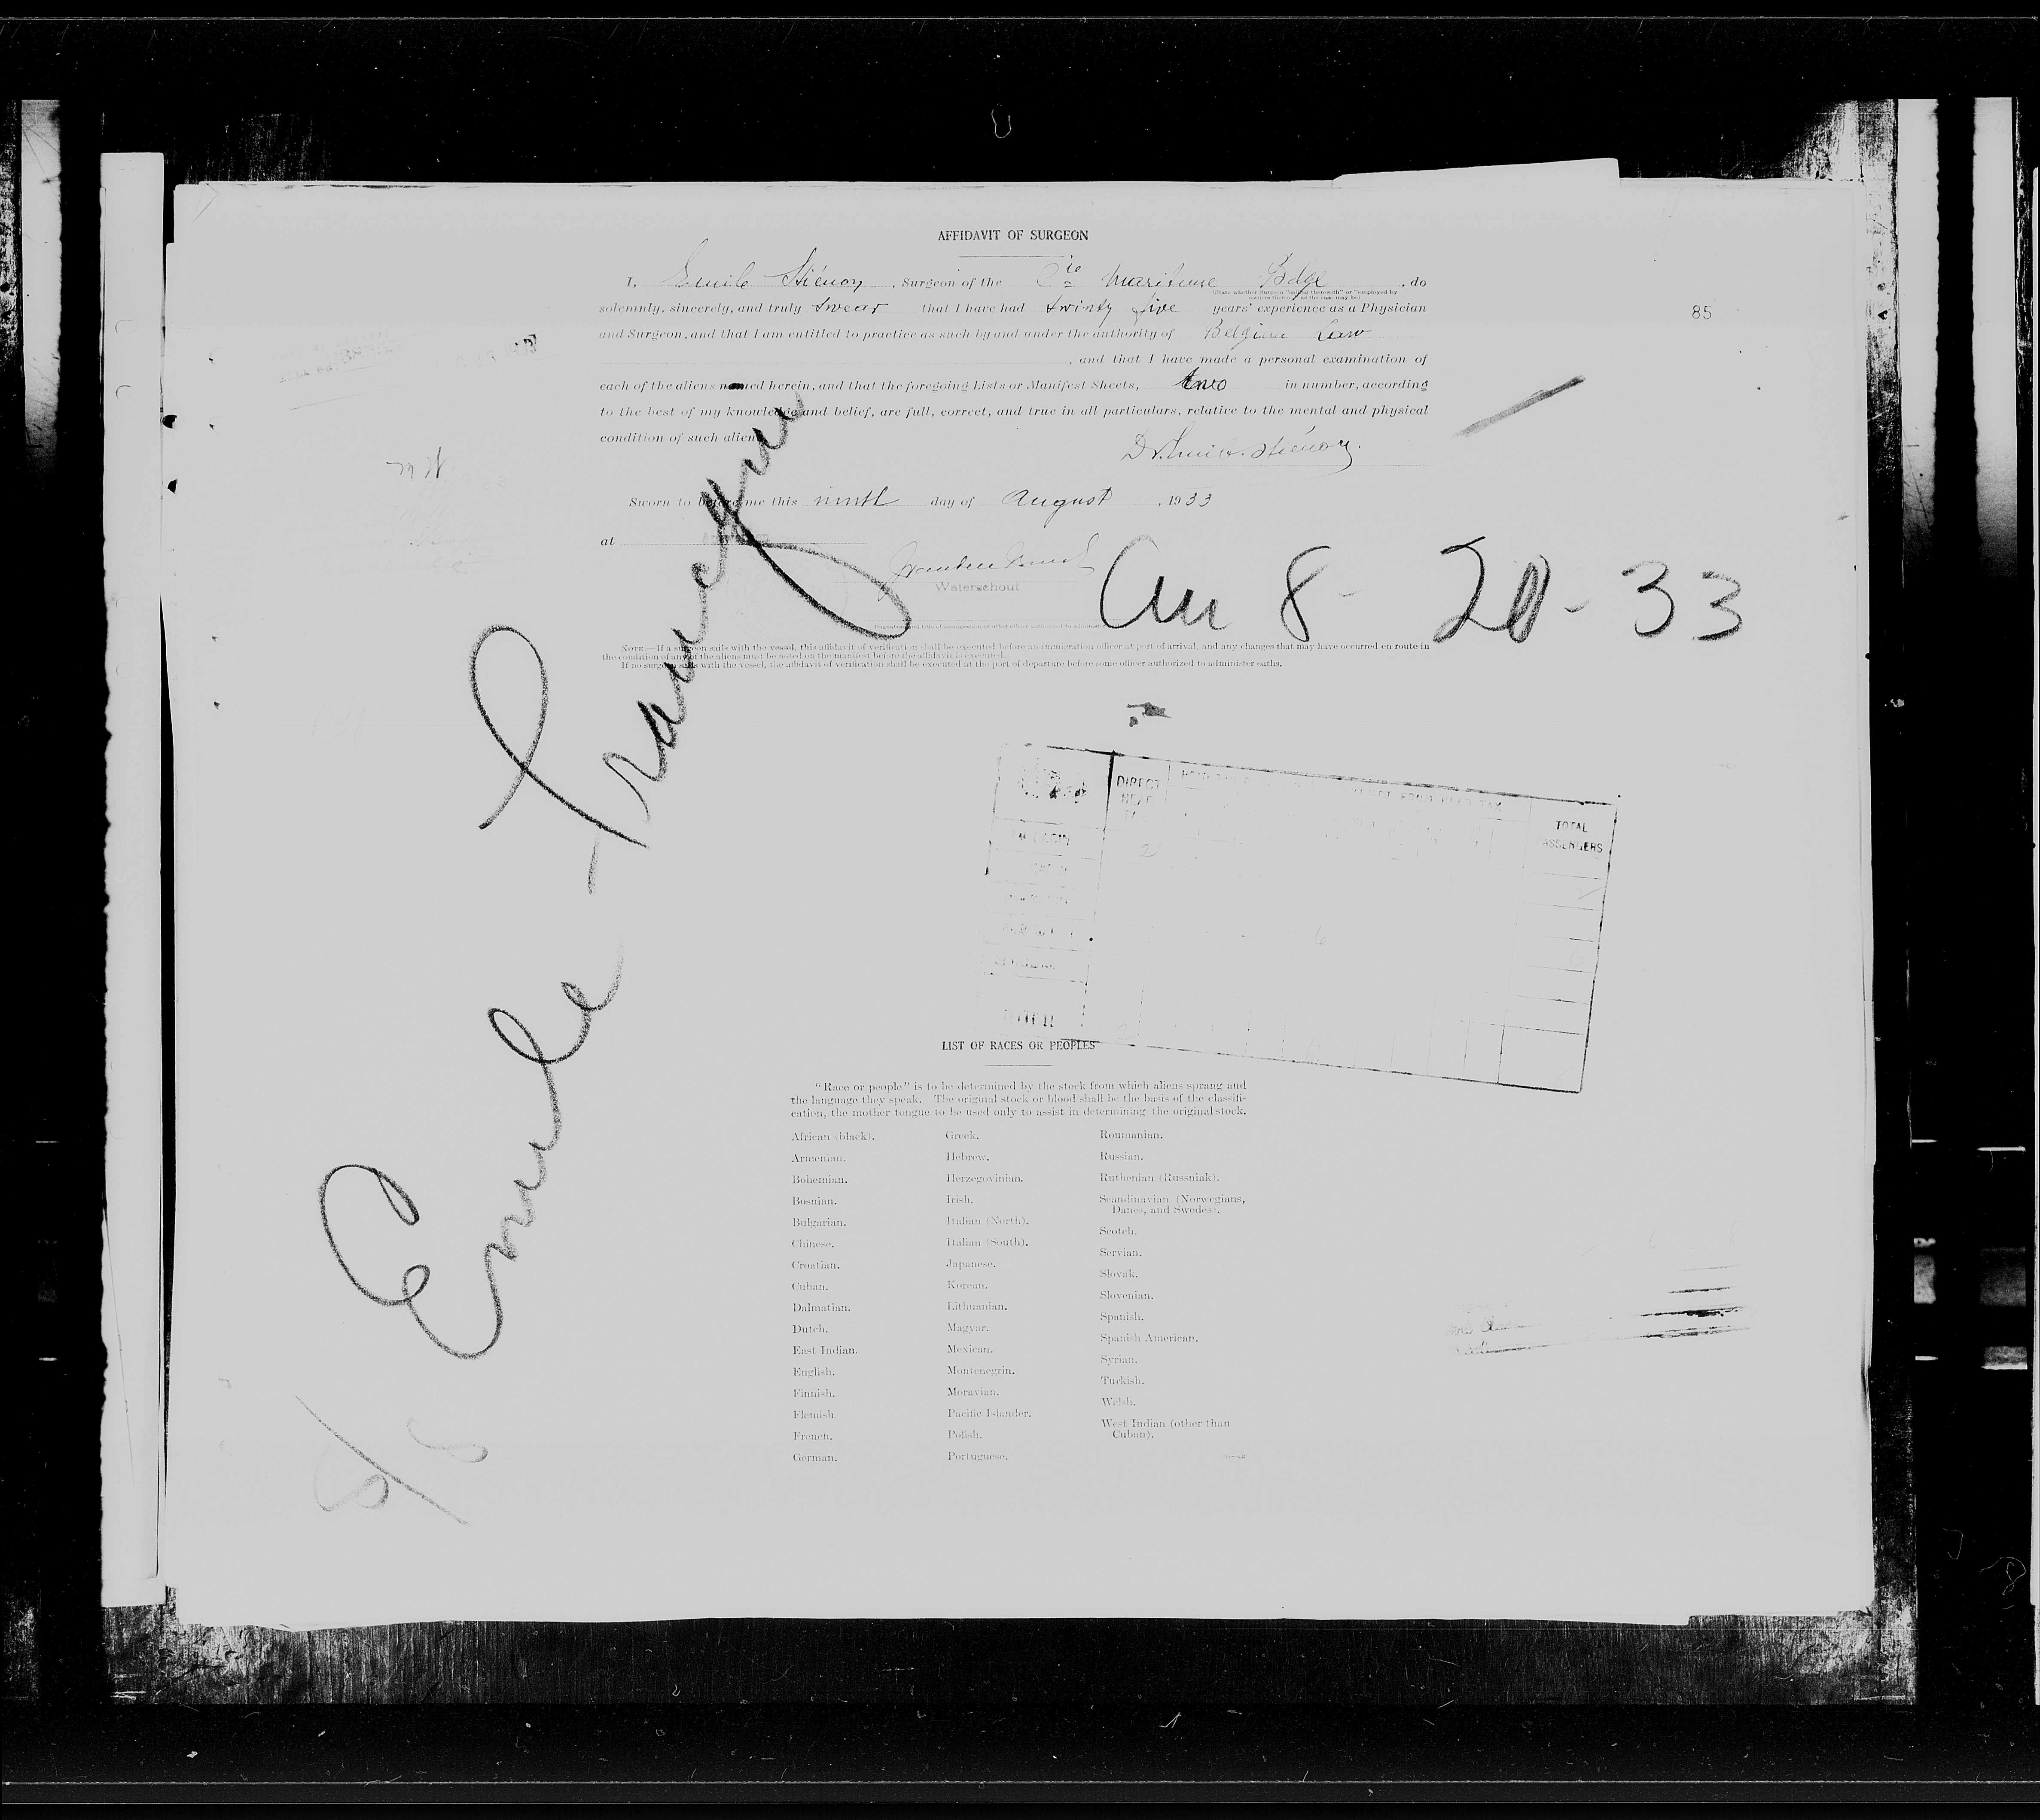 AFFIDAVIT OF SURGEON
I, Emile Stiénon, Surgeon of the Cie Maritime Belge, do
solemnly, sincerely, and truly swear that I have had twinty five years' experience as a Physician
85
and Surgeon, and that I am entitled to practice as such by and under the authority of Belgium Law
, and that I have made a personal examination of
each of the aliens named herein, and that the foregoing Lists or Manifest Sheets, two in number, according
to the best of my knowledge and belief, are full, correct, and true in all particulars, relative to the mental and physical
condition of such aliens
Dr. Emile Stiénon.
Sworn to before me this ninth day of August, 1933
at
Waterschout
8 - 20 - 33
NOTE.—If a surgeon sails with the vessel, this affidavit of verification shall be executed before an immigration officer at port of arrival, and any changes that may have occurred en route in
the condition of any of the aliens must be noted on the manifest before the affidavit is executed.
If no surgeon sails with the vessel, the affidavit of verification shall be executed at the port of departure before some officer authorized to administer oaths.
Emile Francqui
8/8
DIRECT
HEAD
TOTAL
PASSENGERS
2
6
LIST OF RACES OR PEOPLES
"Race or people" is to be determined by the stock from which aliens sprang and
the language they speak. The original stock or blood shall be the basis of the classifi-
cation, the mother tongue to be used only to assist in determining the original stock.
African (black).
Armenian.
Bohemian.
Bosnian.
Bulgarian.
Chinese.
Croatian.
Cuban.
Dalmatian.
Dutch.
East Indian.
English.
Finnish.
Flemish.
French.
German.
Greek.
Hebrew.
Herzegovinian.
Irish.
Italian (North).
Italian (South).
Japanese.
Korean.
Lithuanian.
Magyar.
Mexican.
Montenegrin.
Moravian.
Pacific Islander.
Polish.
Portuguese.
Roumanian.
Russian.
Ruthenian (Russniak).
Scandinavian (Norwegians,
Danes, and Swedes).
Scotch.
Servian.
Slovak.
Slovenian.
Spanish.
Spanish American.
Syrian.
Turkish.
Welsh.
West Indian (other than
Cuban).